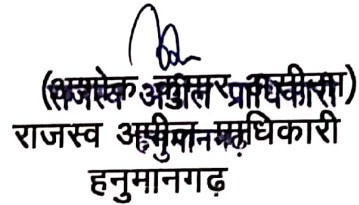 (अशोक कुमार
राजस्व अपील प्राधिकारी
राजस्व अपील प्राधिकारी
हनुमानगढ़
हनुमानगढ़